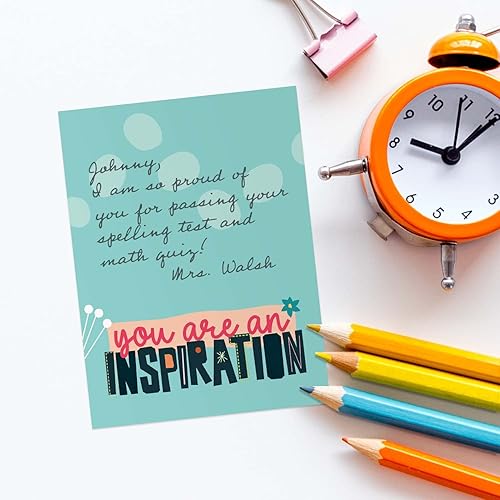 Johnny,
I am so proud of
you for passing your
spelling test and
math quiz!
Mrs. Walsh
you are an
INSPIRATION
10
11
12
1
9
8
7
6
5
4